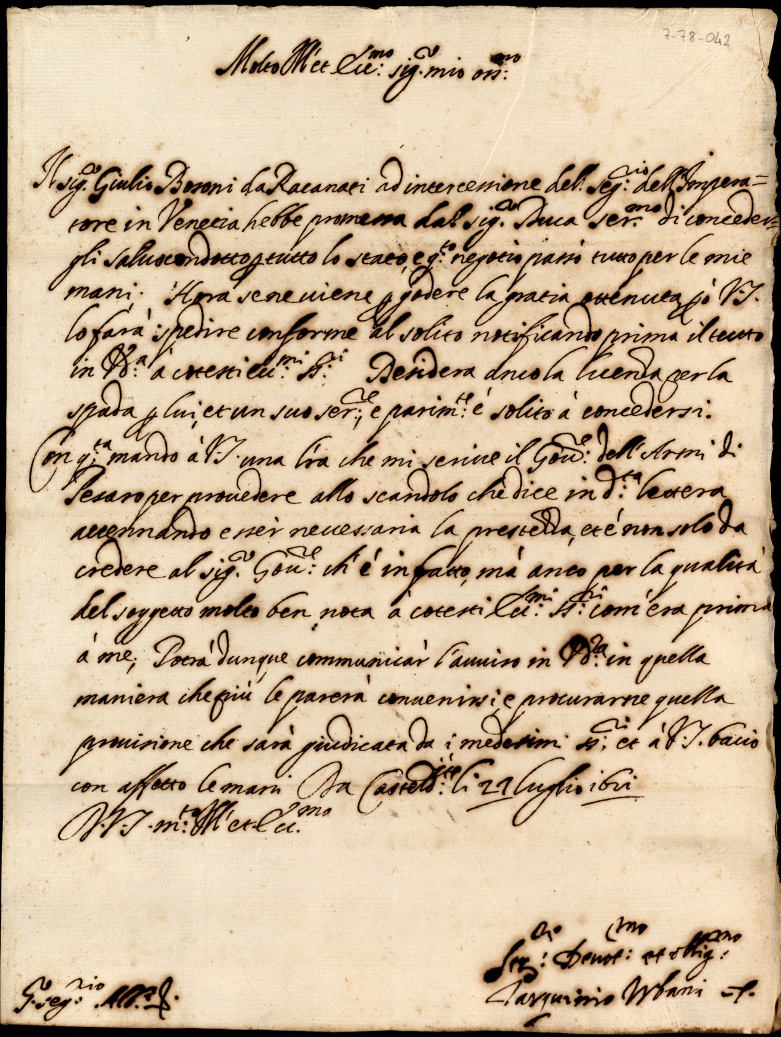 7-78-042
Molto Ill.et Ecc.mo sig.r mio oss.mo
Il sig.r Giulio Boroni da Racanati ad intercessione del seg.rio dell'Impera=
tore in Venetia hebbe promessa dal sig.r Duca ser.mo di conceder=
gli salvocondotto p tutto lo stato, e q.to negotio passò tutto per le mie
mani. Hora se ne viene p godere la gratia ottenuta, però V.S.
lo farà spedire conforme al solito notificando prima il tutto
in à cotesti ecc.mi ss.ri Desidera anco la licenza per la
spada p lui, et un suo ser.re, e parim.te é solito à concedersi.
Con q.ta mando à V.S. una l'ra che mi scrive il Gov.re dell'Armi di
Pesaro per provedere allo scandolo che dice in d.ta lettera
accennando esser necessaria la prestezza, et é non solo da
credere al sig.r Gov.re ch'é in fatto, mà anco per la qualità
del soggetto molto ben nota à cotesti Ecc.mi ss.ri com'era prima
à me; Potrà dunque communicar l'avviso in in quella
maniera che più le parerà convenirsi, e procurarne quella
provisione che sarà giudicata da i medesimi ss.ri et à V.S. bacio
con affetto le mani Da Casteld.te li 27 luglio 1621
D.V.S. m.to Ill.et Ecc.ma
Ser.re Devot.mo et oblig.mo
Pasquinio Urbani
S. seg.rio